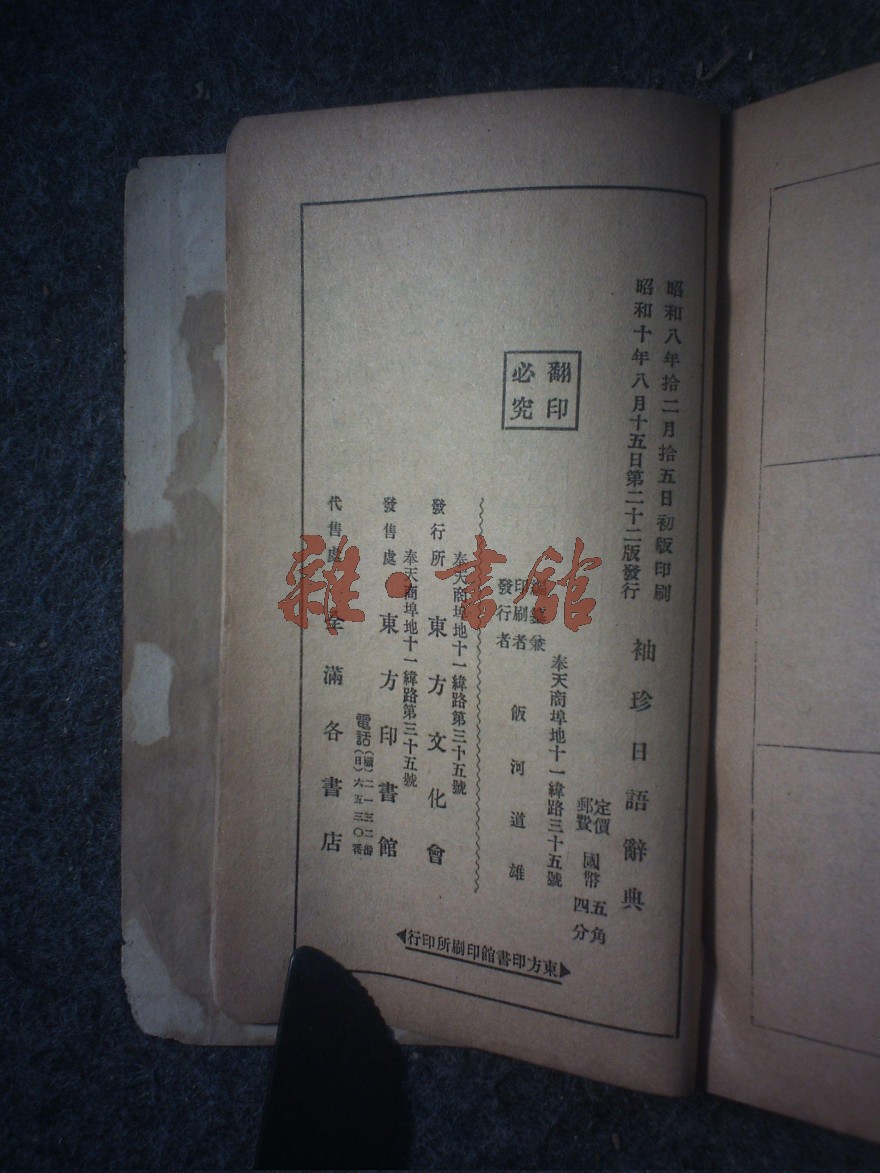 昭和八年拾二月拾五日初版印刷
昭和十年八月十五日第二十二版發行
袖珍日語辭典
定價 國幣五角
郵費 四分
翻印必究
奉天商埠地十一緯路三十五號
編纂兼
印刷者
發行者
飯河道雄
奉天商埠地十一緯路第三十五號
發行所 東方文化會
奉天商埠地十一緯路第三十五號
發售處 東方印書館
電話
二一三二番
(日)六五三〇番
代售處 全滿各書店
東方印書館印刷所印行
雜·書館